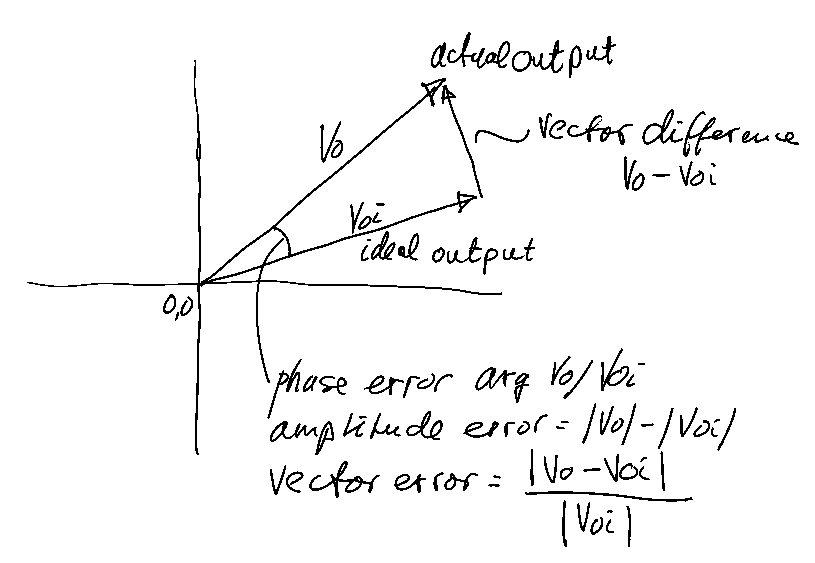 actual output
Vo
vector difference
Vo - Voi
Voi
ideal output
0,0
phase error arg Vo/Voi
amplitude error = |Vo| - |Voi|
vector error = |Vo - Voi|
|Voi|